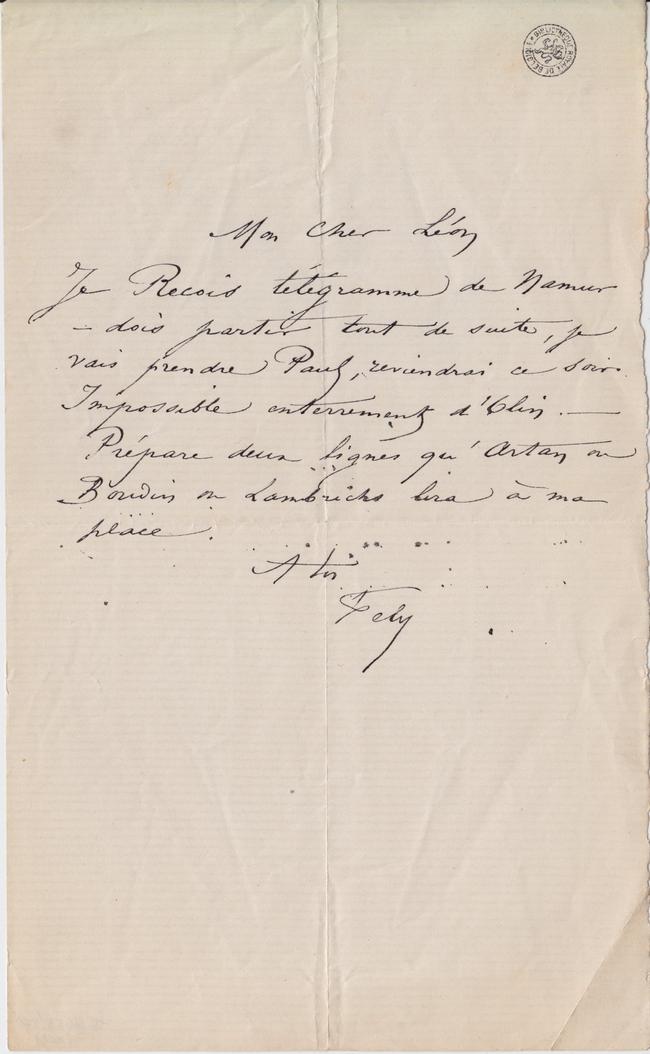 BIBLIOTHÈQUE ROYALE DE BELGIQUE
Mon Cher Léon
Je Recois télégramme de Namur
– dois partir tout de suite, je
vais prendre Paul, reviendrai ce soir.
Impossible enterrement d'Olin. —
Prépare deux lignes qu'Artan ou
Boudin ou Lambrichs lira à ma
place.
A toi
Fely